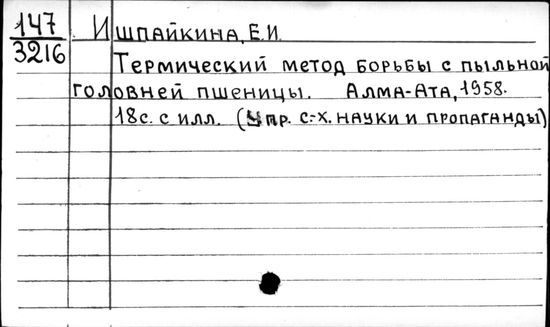 147 Ишпайкина, Е.И.
3216 Термический метод борьбы с пыльной
головней пшеницы. Алма-Ата, 1958.
18с. с илл. (Упр. с.-х. науки и пропаганды)